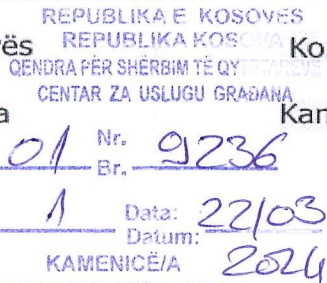 REPUBLIKA E KOSOVËS
REPUBLIKA KOSOVA
QENDRA PËR SHËRBIM TË QYTETARËVE
CENTAR ZA USLUGU GRAĐANA
01 Nr. Br. 9236
1 Data: Datum: 22/03
KAMENICË/A 2024